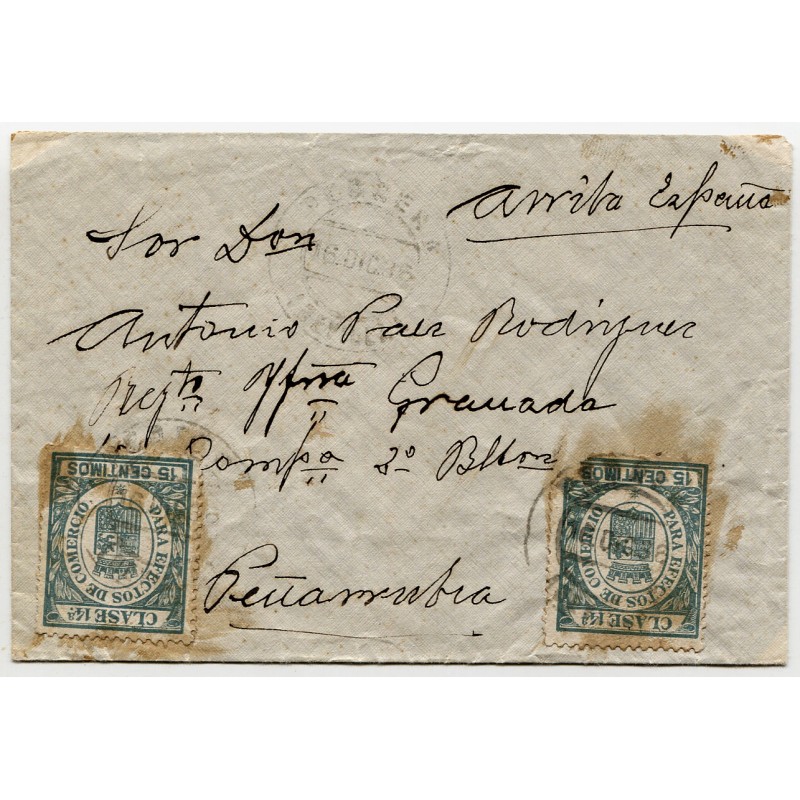 Arriba España
Sor Don
Antonio Paez Rodriguez
Regto Yfnia Granada
Compa 2º Bllon
Peñarrubia
16.DIC.36
15 CENTIMOS
PARA EFECTOS DE COMERCIO
CLASE 14ª
15 CENTIMOS
PARA EFECTOS DE COMERCIO
CLASE 14ª